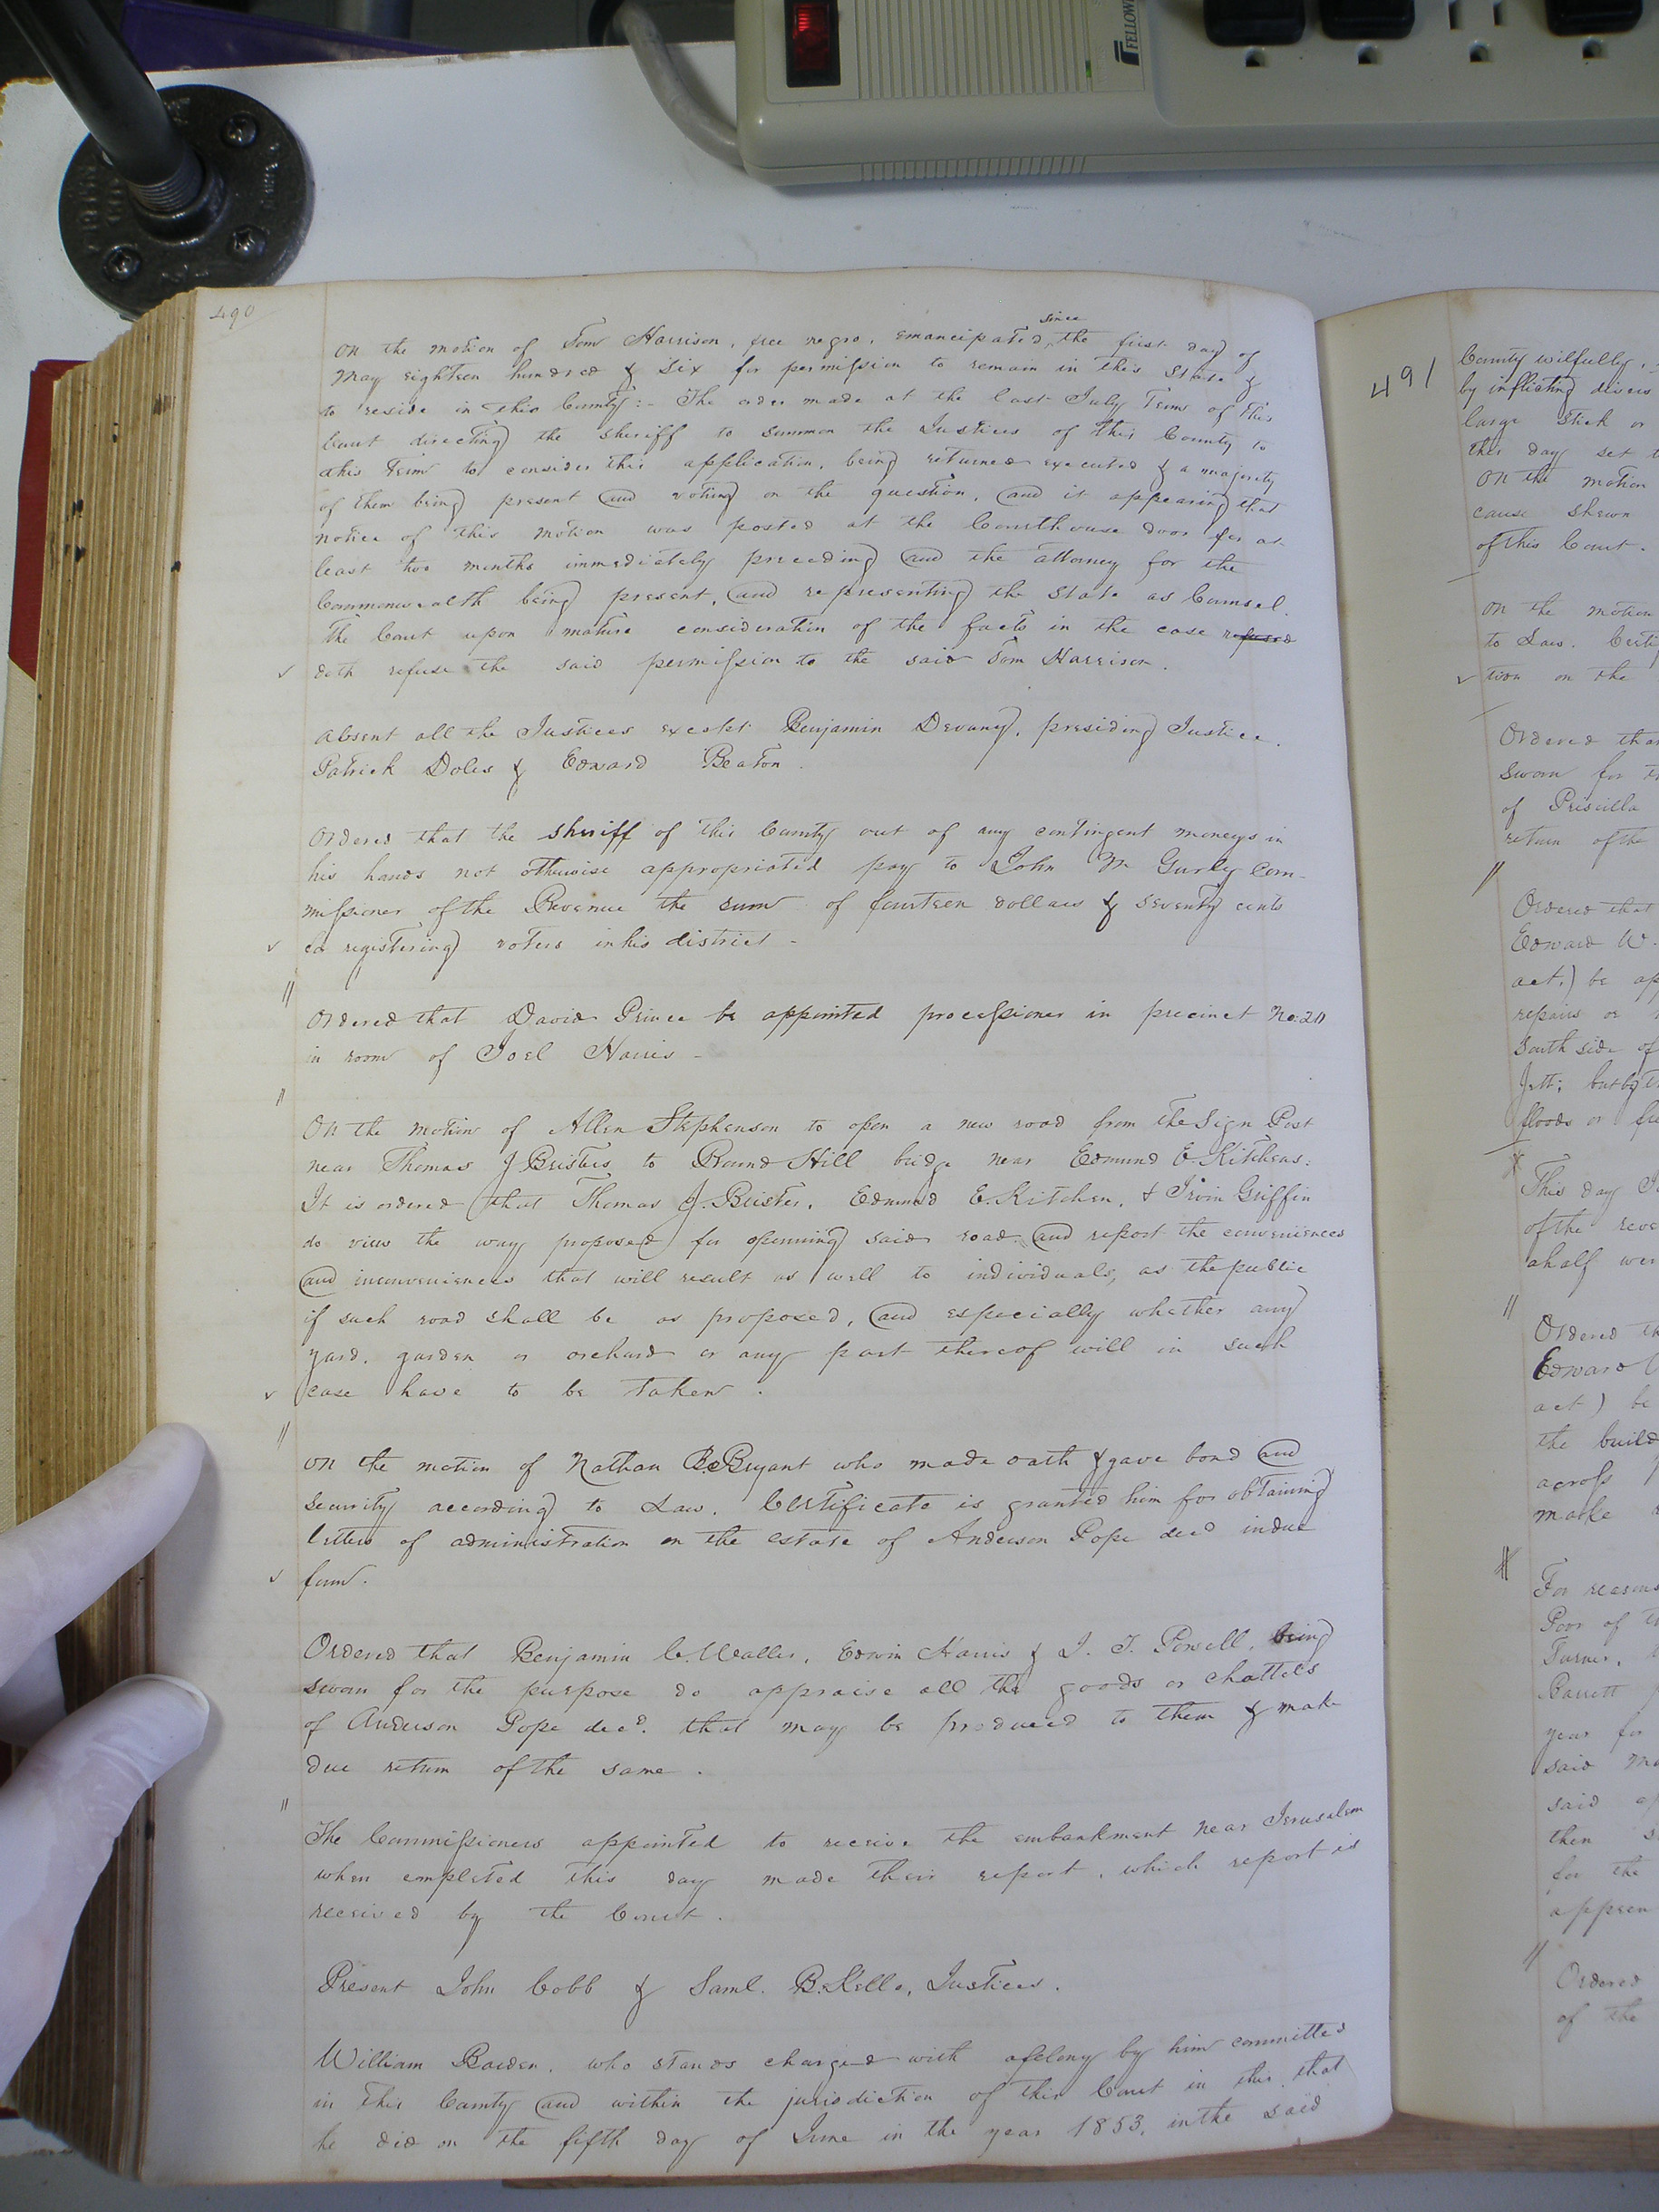 FELLOWE
490
On the motion of Tom Harrison, free negro, emancipated since the first day of
May eighteen hundred & six for permission to remain in this State &
to reside in this County:- The order made at the last July Term of this
Court directing the sheriff to summon the Justices of this County to
this Term to consider this application, being returned executed & a majority
of them being present and voting on the question, and it appearing that
notice of this motion was posted at the Courthouse door for at
least two months immediately preceeding and the attorney for the
Commonwealth being present, and representing the State as Counsel.
The Court upon mature consideration of the facts in the case refused
doth refuse the said permission to the said Tom Harrison.
Absent all the Justices except Benjamin Devany, presiding Justice.
Patrick Doles & Edward Beaton.
Ordered that the sheriff of this County out of any contingent moneys in
his hands not otherwise appropriated pay to John M Gurley Com-
missioner of the Revenue the sum of fourteen dollars & seventy cents
registering voters in his district -
Ordered that David Prince be appointed processioner in precinct No.
in room of Joel Harris -
On the motion of Allen Stephenson to open a new road from the Sign Post
near Thomas J Bristers to Round Hill bridge near Edmund E. Kitchens:
It is ordered that Thomas J. Brister, Edmund E. Kitchen, & Irvin Griffin
do view the way proposed for openning said road and report the conveniences
and inconveniences that will result as well to individuals, as the public
if such road shall be as proposed, and especially whether any
yard, garden or orchard or any part thereof will in such
case have to be taken.
On the motion of Nathan B. Bryant who made oath & gave bond and
security according to Law. Certificate is granted him for obtaining
letters of administration on the estate of Anderson Pope decd in due
form.
Ordered that Benjamin C. Waller, Edwin Harris & J. T. Powell, being
sworn for the purpose do appraise all the goods or chattels
of Anderson Pope decd. that may be produced to them & make
due return of the same.
The Commissioners appointed to receive the embankment near Jerusalem
when completed this day made their report, which report is
received by the Court.
Present John Cobb & Saml. B. Kello, Justices.
William Barden, who stands charged with a felony by him committed
in this County and within the jurisdiction of this Court in this, that
he did on the fifth day of June in the year 1853, in the said
491
County wilfully,
by inflicting divers
large stick or
this day set
On the motion
cause shewn
of this Court.
On the motion
to Law. Certi
tion on the
Ordered that
sworn for
of Priscilla
return of the
Ordered that
Edward W.
act.) be ap
repairs or
South side of
floods or
This day
of the
a half
Ordered
Edward
act) be
the build
across
make
For reasons
Poor of
Turner,
Barrett
year for
said
said
then
for the
appren
Ordered
of the